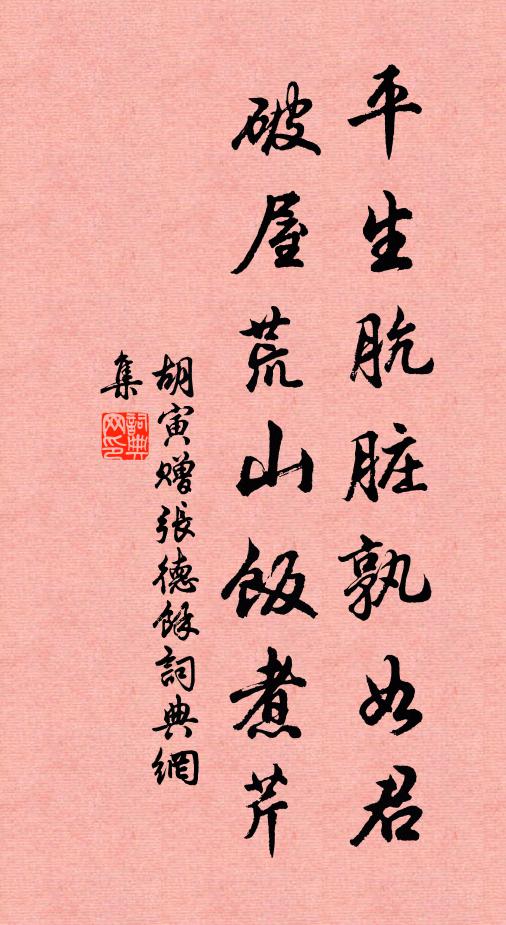 平生肮脏孰如君
破屋荒山饭煮芹
胡寅赠張德餘詞典網
集
詞典網印